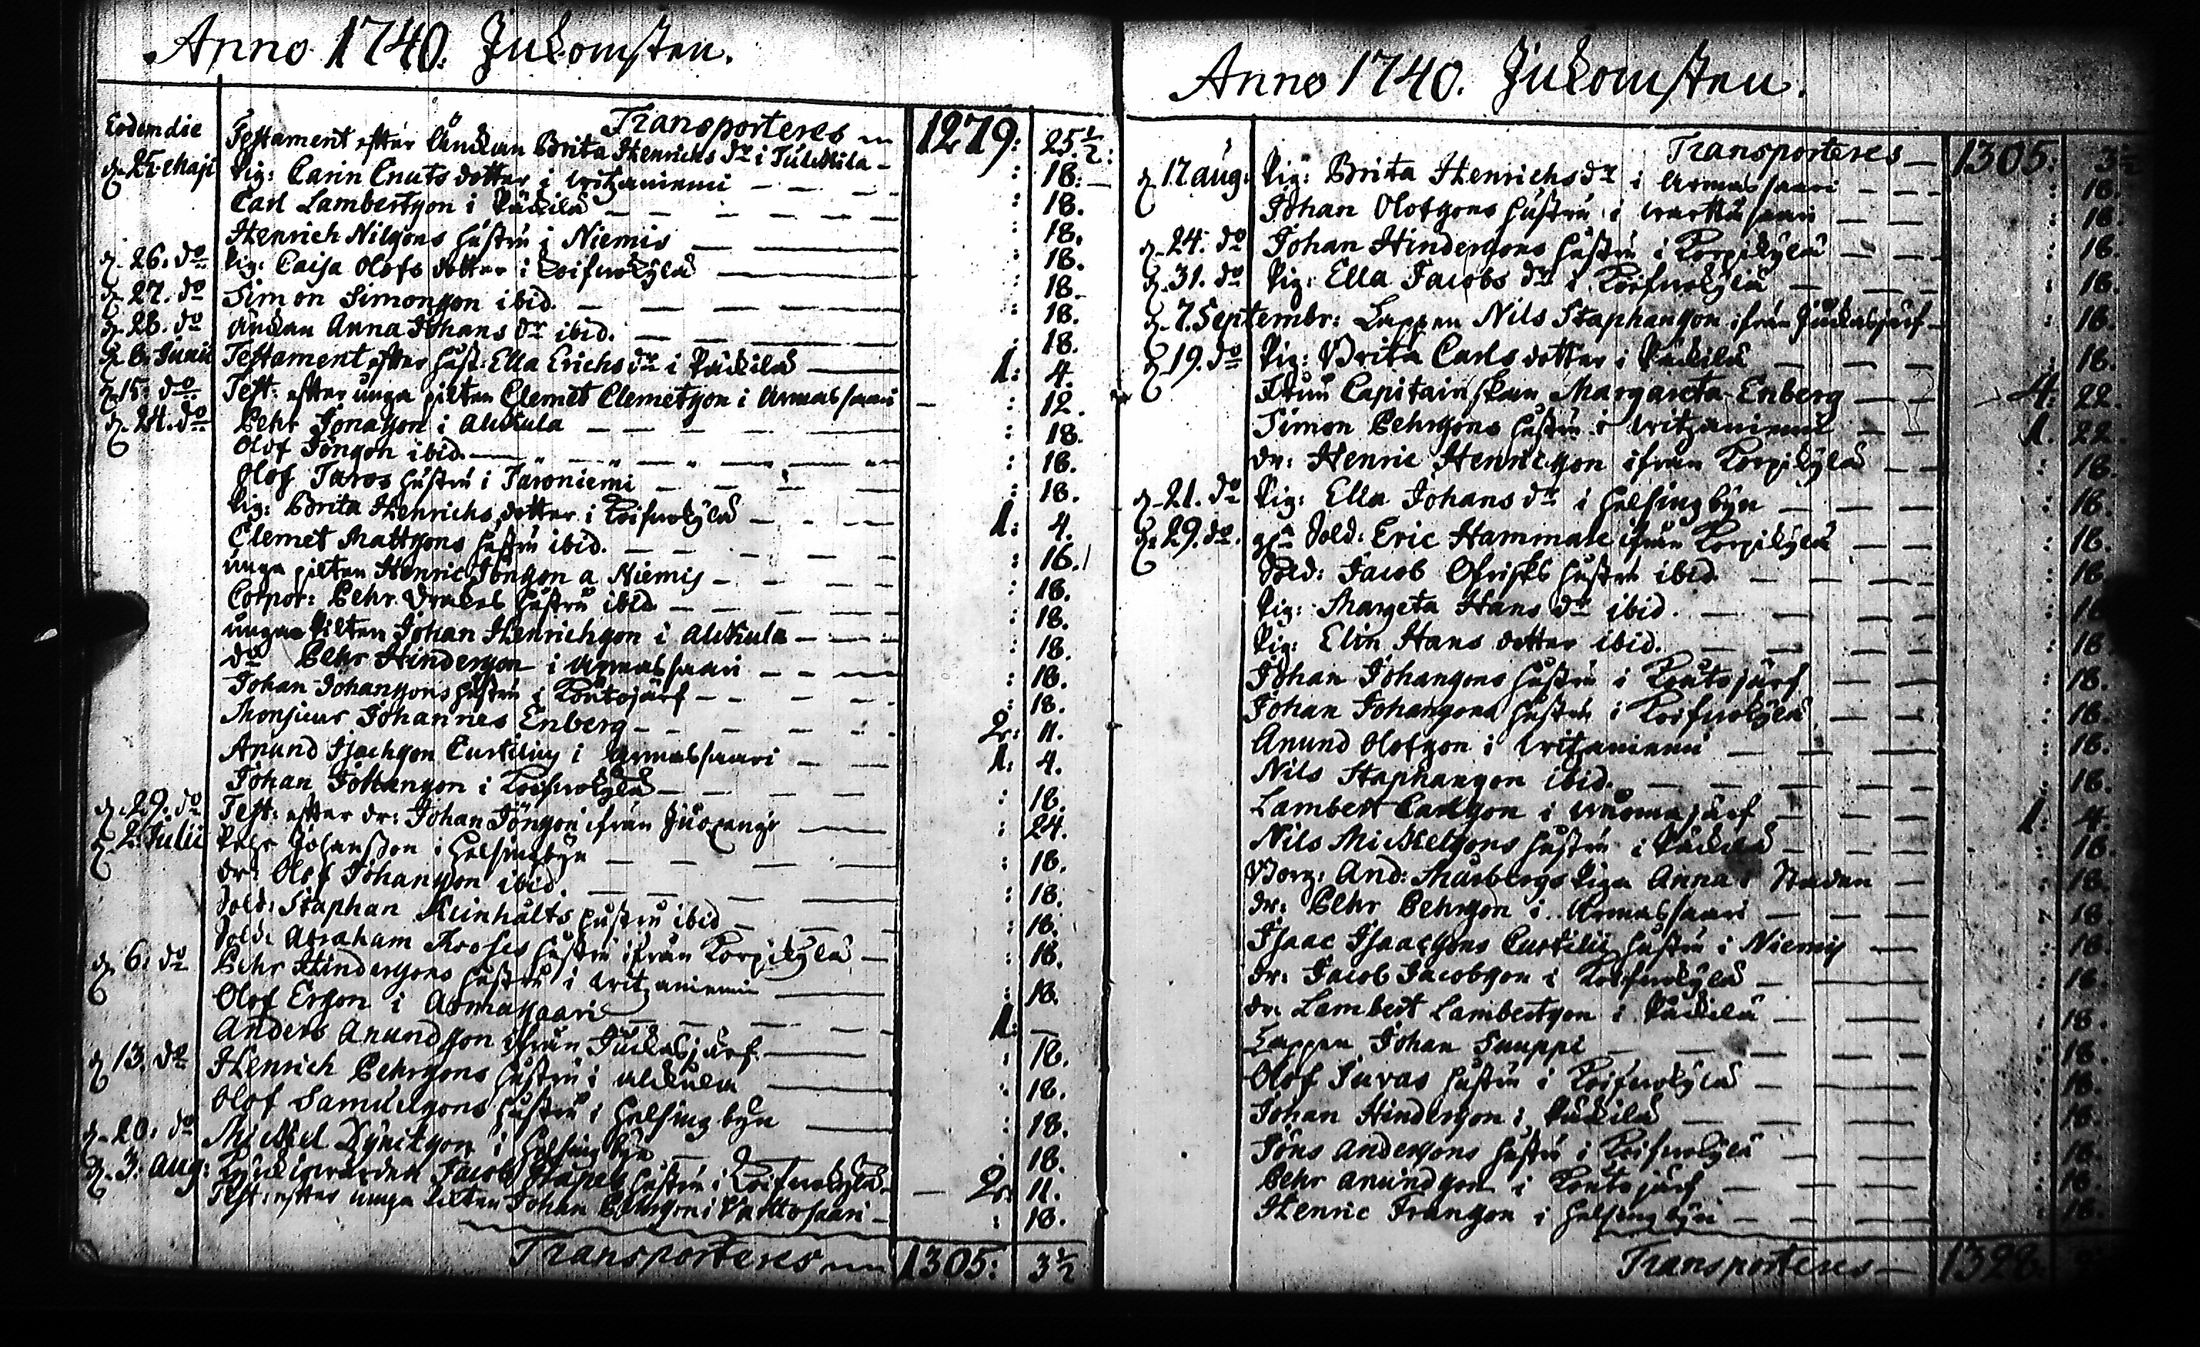 Anno 1740. Inkomsten.
Transporteres 1279: 25½:
Eodem die Testament efter Änckan Brita Henrichs dr i Turckila - : 18. -
d. 25. Maji Pig: Carin Cnuts dotter i Witzaniemi : 18.
Carl Lambertson i Päckilä : 18.
Henrich Nilsons hustru i Niemis : 18.
d. 26. do Pig: Caisa Olofs dotter i Koifwokylä : 18.
d. 27. do Simon Simonson ibid. : 18.
d. 28. do änckan Anna Johans dr ibid. : 18.
d. 8. Junii Testament efter hust: Ella Erichs dr i Päckilä 1: 4.
d. 15. do Test: efter unga pilten Clemet Clemetson i Armassaari : 12.
d. 24. do Pehr Jonasson i Alckula : 18.
Olof Jönson ibid. : 18.
Olof Taros hustru i Taroniemi : 18.
Pig: Brita Henrichs dotter i Koifwokylä 1: 4.
Clemet Mattsons hustru ibid. : 16.
unga pilten Henric Jönson a Niemis : 18.
Corpor: Pehr Drakes hustru ibid : 18.
unga Pilten Johan Henrichson i Alckula : 18.
do Pehr Hinderson i Armassaari : 18.
Johan Johansons hustru i Koutojärf : 18.
Monsieur Johannes Enberg 2: 11.
Anund Isachson Curtelius i Armassaari 1: 4.
Johan Johanson i Koifwokylä : 18.
d. 29. do Test: efter dr: Johan Jönson ifrån Juoxengi : 24.
d. 2. Julii Pehr Johansson i Helsingbyn : 18.
dr: Olof Johanson ibid. : 18.
Sold: Staphan Kleinhålts hustru ibid : 18.
Sold: Abraham Kroskes hustru ifrån Korpikylä : 18.
d. 6. do Pehr Hindersons hustru i Witzaniemi : 18.
Olof Erson i Armassaari 1: —
Anders Anundson ifrån Juckasjärf : 18.
d. 13. do Henrich Pehrsons hustru i Alckula : 18.
Olof Samuelsons hustru i Helsingbyn : 18.
d. 20. do Mickel Dynikson i Helsingbyn : 18.
d. 3. Aug: Kyrckiowärden Jacob hustru i Koifwokylä 2: 11.
Test: efter unga Pilten Johan Pehrson i : 18.
Transporteres 1305: 3½
Anno 1740. Inkomsten.
Transporteres 1305: 3½
d. 17 aug. Pig: Brita Henrichs dr i Armassaari : 18.
Johan Olofsons hustru i : 18.
d. 24. do Johan Hindersons hustru i Korpikylä : 18.
d. 31. do Pig: Ella Jacobs dr i Koifwokylä : 18.
d. 7 Septembr: Lappen Nils Staphanson ifrån Juckasjärf : 18.
d. 19. do Pig: Brita Carls dotter i Päckilä : 18.
Capitainskan Margareta Enberg 4: 22.
Simon Pehrsons hustru i Witzaniemi 1. 22.
dr: Henric Henricson ifrån Korpikylä : 18.
d. 21. do Pig: Ella Johans dr i Helsingbyn : 18.
d. 29. do. Sold: Eric Hammare ifrån Korpikylä : 18.
Sold: Jacob hustru ibid : 18.
Pig: Margeta Hans dr ibid. : 18
Pig: Elin Hans dotter ibid. : 18.
Johan Johansons hustru i Koutojärf : 18.
Johan Johansons hustru i Koifwokylä : 18.
Anund Olofson i Witzaniemi : 18.
Nils Staphanson ibid. : 18.
Lambert Carlson i Wuomajärf 1: 4.
Nils Mickelsons hustru i Päckilä : 18.
Borg: And: Murbergs Piga Anna i Staden : 18.
dr: Pehr Pehrson i Armassaari : 18
Isaac Isaacsons Curtelii hustru i Niemis : 18
dr: Jacob Jacobson i Koifwokylä : 18.
dr: Lambert Lambertson i Päckilä : 18.
Lappen Johan Suuppi : 18.
Olof Juvas hustru i Koifwokylä : 18.
Johan Hinderson i Päckilä : 18.
Jöns Andersons hustru i Koifwokylä : 18.
Pehr Anundson i Koutojärf : 18.
Henric Franson i Helsingbyn : 18.
Transporteres 1328.